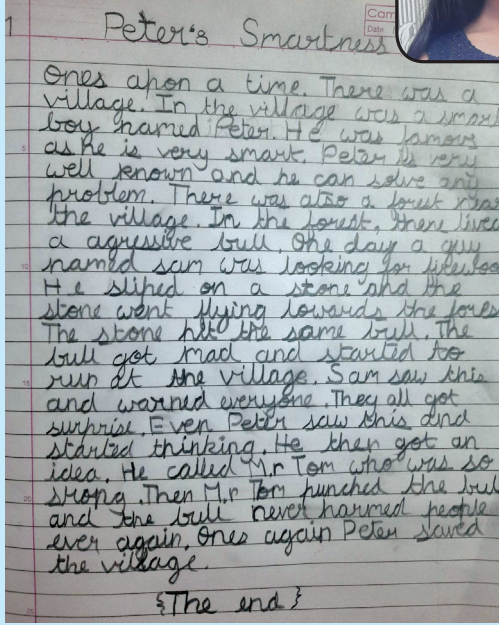 1
Cam
Date
Peter's Smartness
Ones apon a time. There was a
village. In the village was a smart
boy named Peter. He was famous
as he is very smart. Peter is very
well known and he can solve any
problem. There was also a forest near
the village. In the forest, there lived
a agressive bull. One day a guy
named sam was looking for firewood
He sliped on a stone and the
stone went flying towards the fores
The stone hit the same bull. The
bull got mad and started to
run at the village. Sam saw this
and warned everyone. They all got
surprise. Even Peter saw this and
started thinking. He then got an
idea. He called M.r Tom who was so
strong. Then M.r Tom punched the bul
and the bull never harmed people
ever again. Ones again Peter saved
the village.
{The end}